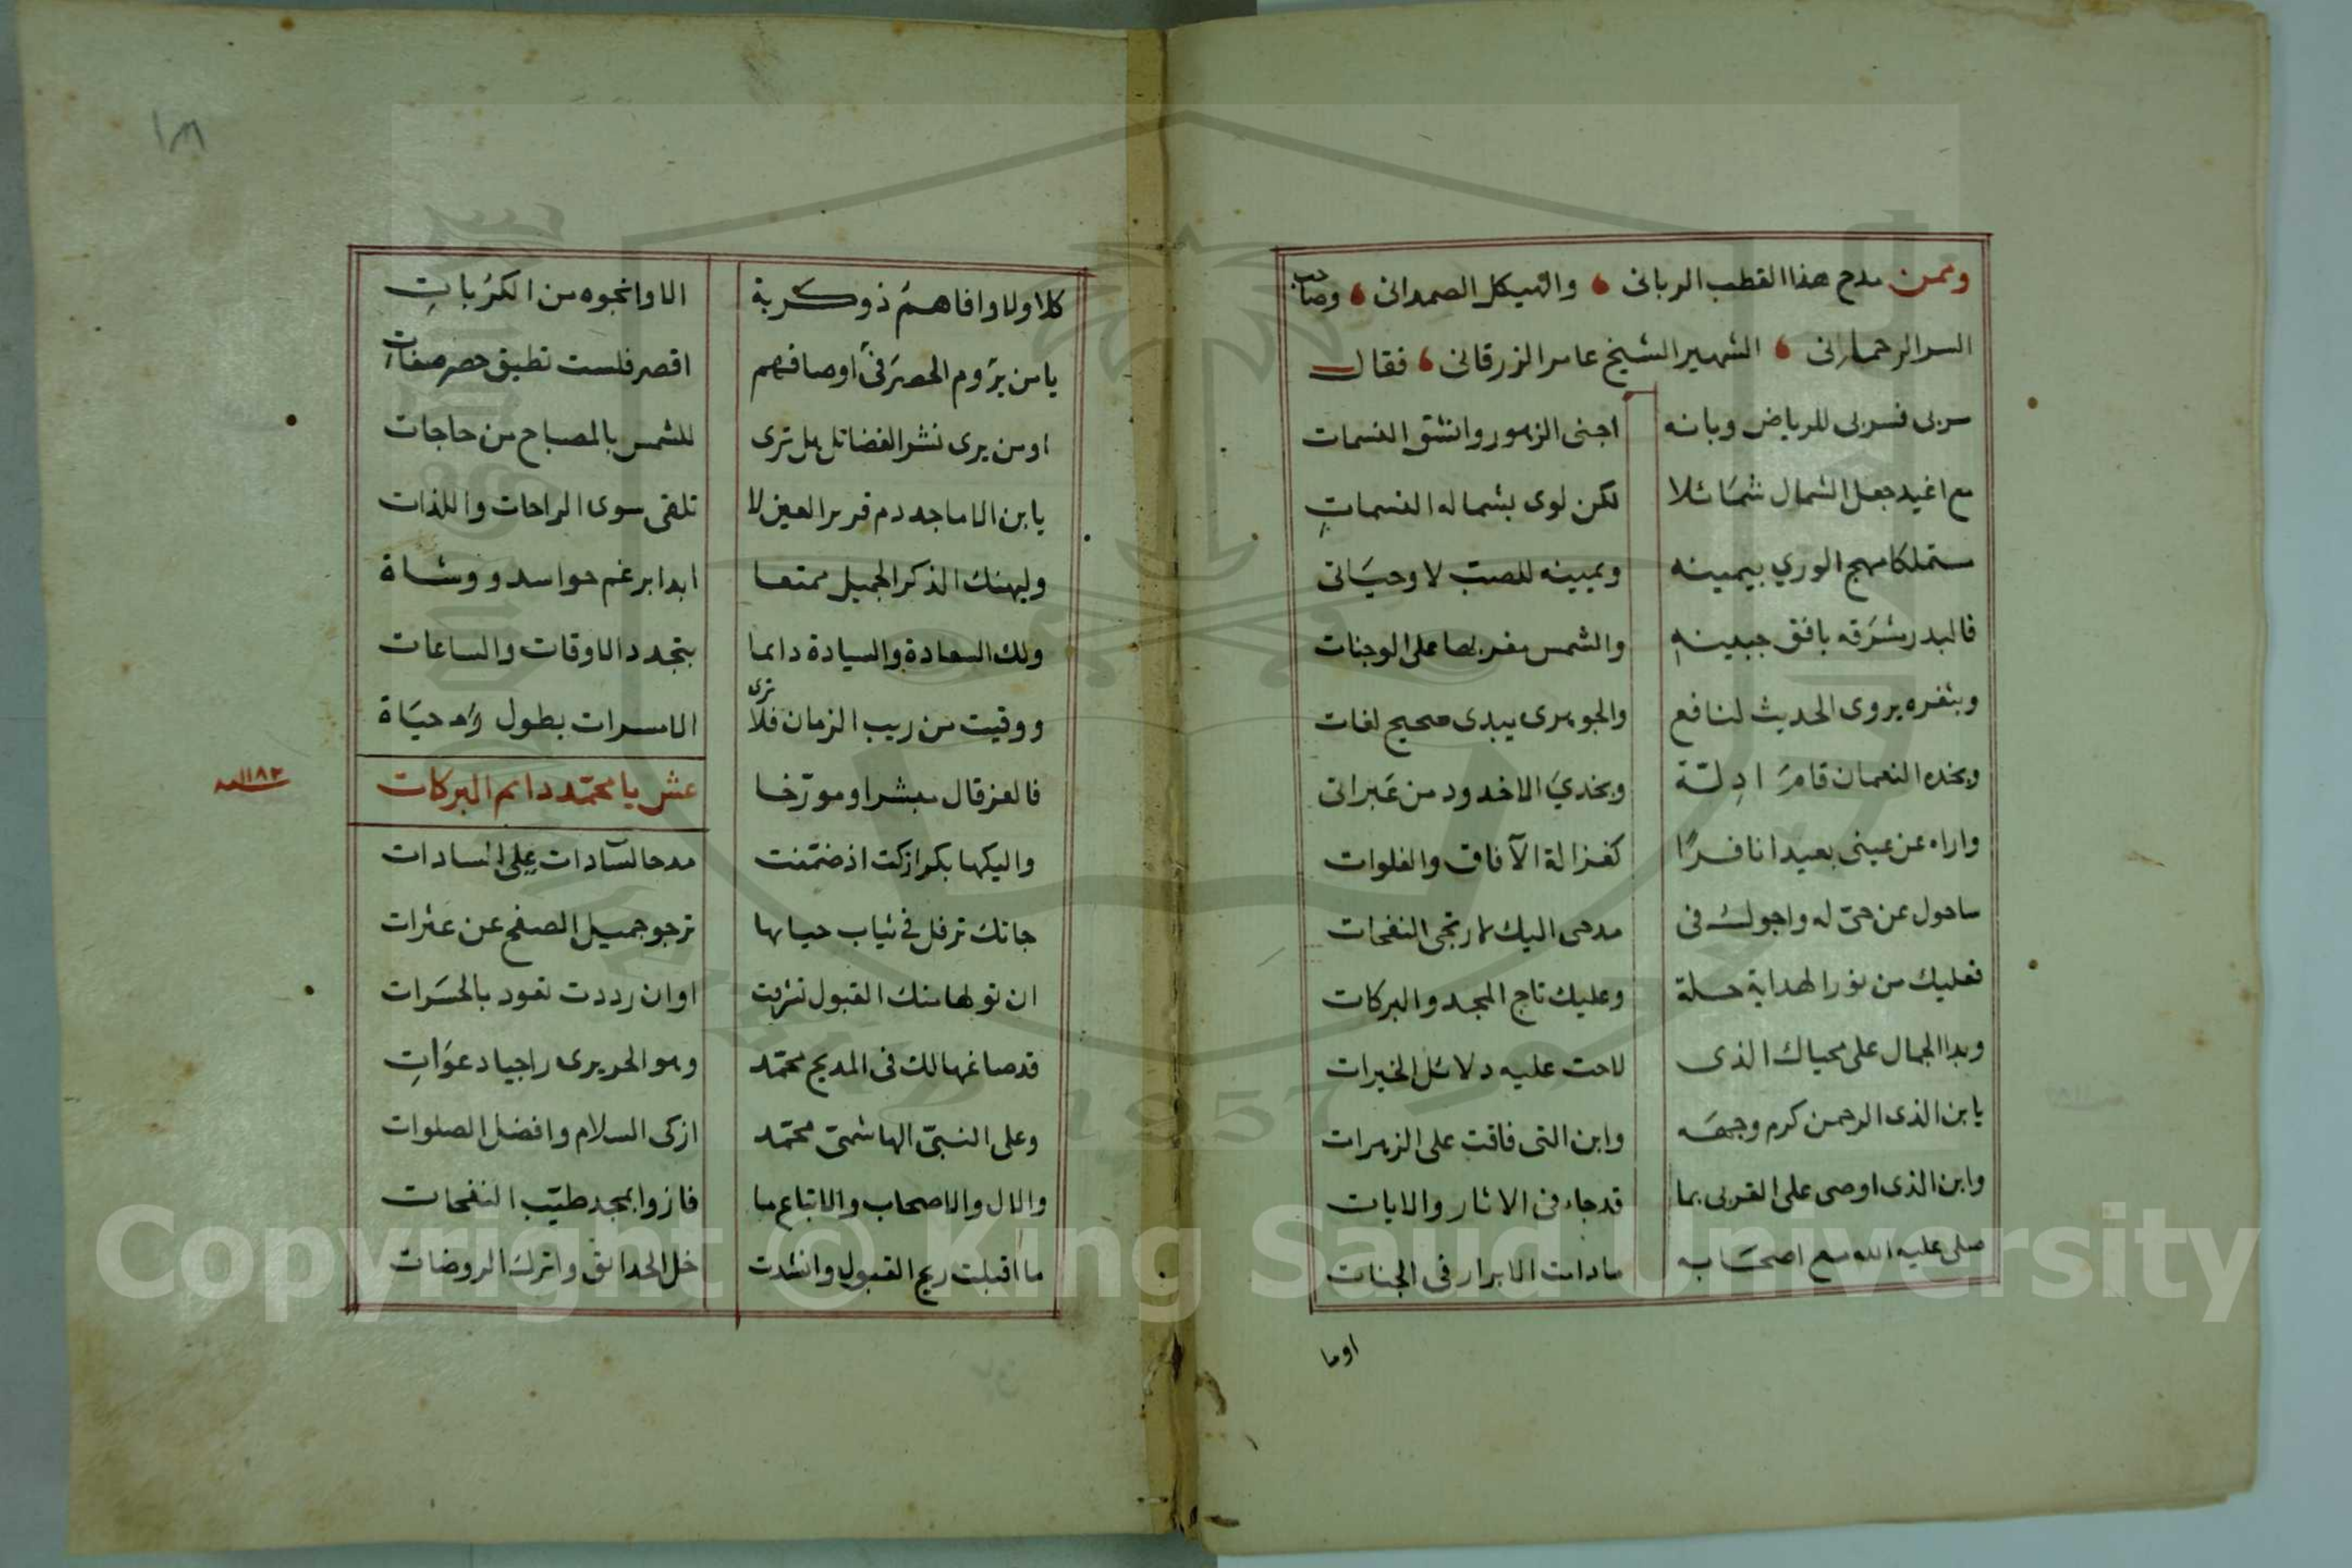 وممن مدح هذا القطب الربانى والهيكل الصمدانى وصاحب
السر الرحمانى الشهير الشيخ عامر الزرقانى فقال
سربى فسربى للرياض وبانه اجنى الزهور وانشق النسمات
مع اغيد جعل الشمال شمائلا لكن لوى بشماله النسمات
ستملكا مهج الورى بيمينه ويمينه للصب لا وحياتى
فالبدر شرقه بافق جبينه والشمس مغربها على الوجنات
وبثغره يروى الحديث لنافع والجوهرى يبدى صحيح لغات
وبخده النعمان قام ادلة وبخدي الاخدود من عبراتى
واراه عن عينى بعيدا نافرا كغزالة الآفاق والفلوات
ساحول عن حبى له واجول فى مدحى اليك لارتجى النفحات
فعليك من نور الهداية حلة وعليك تاج المجد والبركات
وبدا الجمال على محياك الذى لاحت عليه دلائل الخيرات
يا بن الذى الرحمن كرم وجهه وابن التى فاقت على الزهرات
وابن الذى اوصى على القربى بما قد جاء فى الاثار والايات
صلى عليه الله مع اصحابه مادامت الابرار فى الجنات
اوما
١٨١
كلا ولا وافاهم ذو كربة الا وانجوه من الكربات
يا من يروم الحصر فى اوصافهم اقصر فلست تطيق حصر صفات
او من يرى نشر الفضائل هل ترى للشمس بالمصباح من حاجات
يا بن الاماجد دم قرير العين لا تلقى سوى الراحات واللذات
وليهنك الذكر الجميل ممتعا ابدا برغم حواسد ووشاة
ولك السعادة والسيادة دايما بتجدد الاوقات والساعات
ووقيت من ريب الزمان فلا ترى الا مسرات بطول حياة
فالعز قال مبشرا ومورخا عش يا محمد دايم البركات
١١٨٢
واليكها بكرا زكت اذ ضمنت مدحا لسادات على السادات
جاتك ترفل فى ثياب حيائها ترجو جميل الصفح عن عثرات
ان تولها منك القبول تشرفت او ان رددت تعود بالحسرات
قد صاغها لك فى المديح محمد وهو الحريرى راجيا دعوات
وعلى النبى الهاشمى محمد ازكى السلام وافضل الصلوات
والال والاصحاب والاتباع ما فازوا بمجد طيب النفحات
ما اقبلت ريح القبول وانشدت خل الحدائق واترك الروضات
Copyright © King Saud University
1957